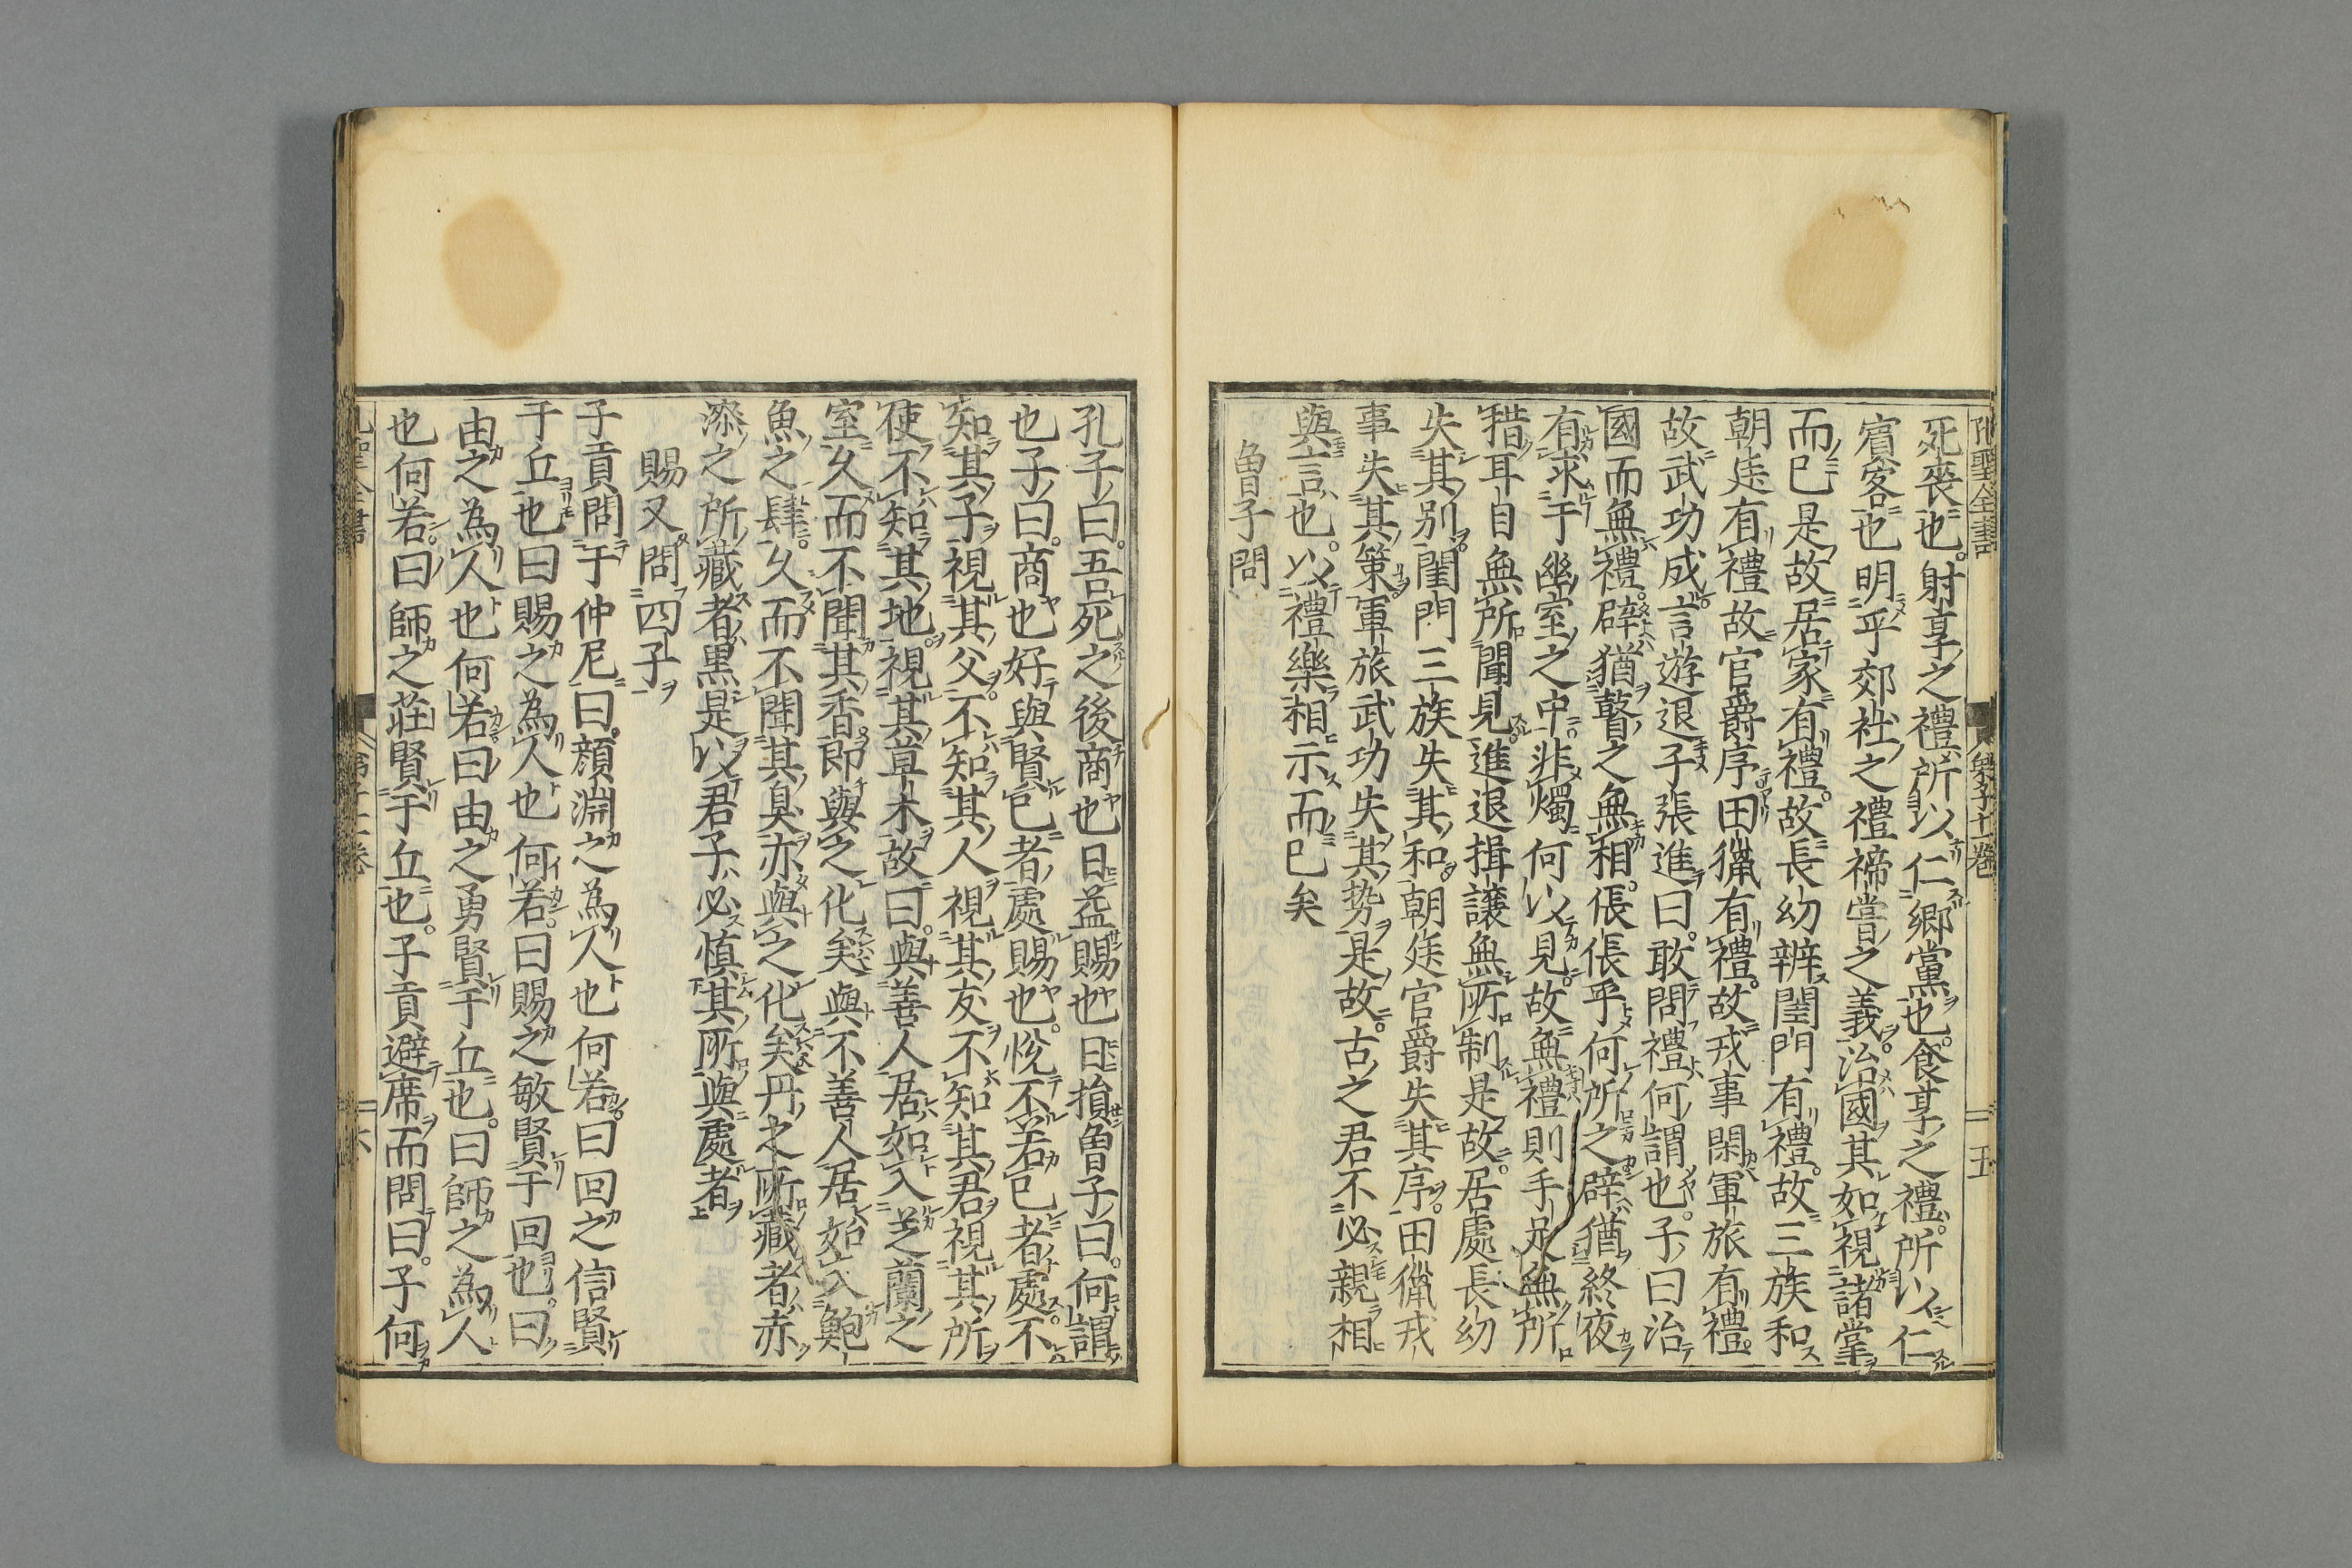 孔聖全書 第十一卷 五
死喪也。射享之禮所以仁鄉黨也。食享之禮。所以仁
賓客也明乎郊社之禮禘嘗之義。治國其如視諸掌
而已是故居家有禮。故長幼辨閨門有禮。故三族和
朝廷有禮故官爵序田獵有禮。故戎事閑軍旅有禮。
故武功成。言遊退子張進曰。敢問禮何謂也。子曰治
國而無禮。辟猶瞽之無相。倀倀乎何所之辟猶終夜
有求于幽室之中。非燭何以見。故無禮則手足無所
措耳目無所聞見。進退揖讓無所制是故。居處長幼
失其別。閨門三族失其和。朝廷官爵失其序。田獵戎
事失其策。軍旅武功失其势是故。古之君不必親相
與言也。以禮樂相示而已矣
魯子問
孔子曰。吾死之後商也日益賜也日損魯子曰。何謂
也子曰。商也好與賢已者處賜也。悅不若已者處。不
知其子視其父。不知其人視其友不知其君視其所
使不知其地。視其草木故曰。與善人居如入芝蘭之
室久而不聞其香。即與之化矣與不善人居如入鮑
魚之肆。久而不聞其臭亦與之化矣丹之所藏者赤
漆之所藏者黑是以君子必慎其所與處者
賜又問四子
子貢問于仲尼曰。顏淵之為人也何若。曰回之信賢
于丘也曰賜之為人也何若。曰賜之敏賢于回也。曰
由之為人也何若曰由之勇賢于丘也。曰師之為人
也何若。曰師之莊賢于丘也。子貢避席而問曰。子何
孔聖全書 第十一卷 六